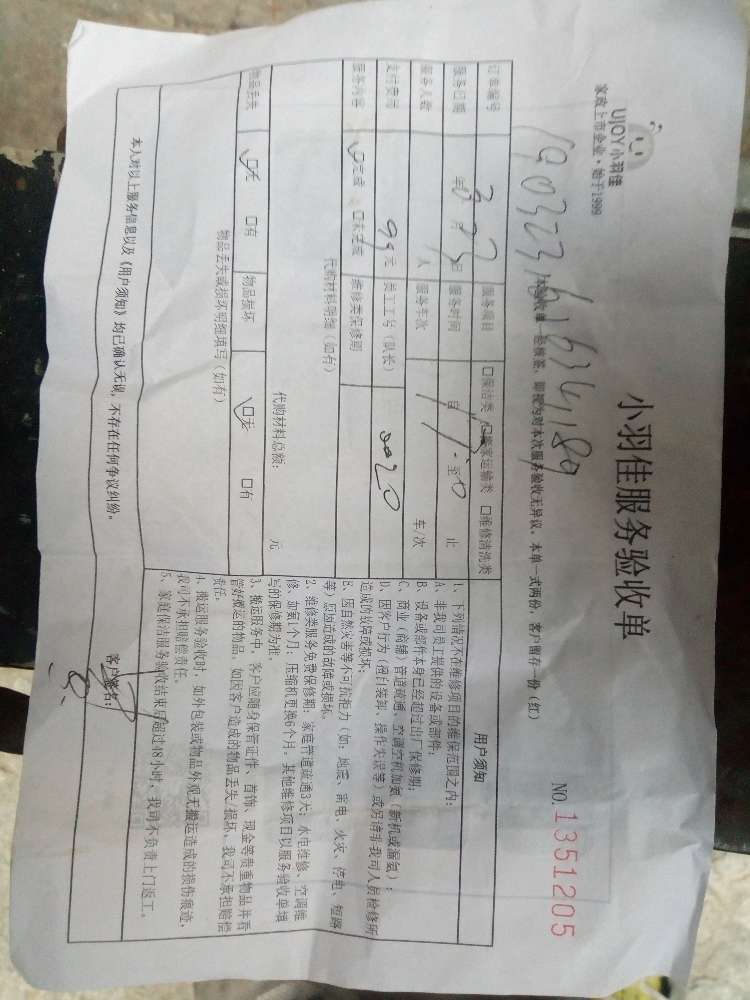 UJOY小羽佳
家政上市企业·始于1999
小羽佳服务验收单
NO. 1351205
验收单一经核签，即视为对本次服务验收无异议。本单一式两份，客户留存一份（红）
订单编号
服务项目 □保洁类 □搬家运输类 □维修清洗类
服务日期 年 3 月 23 日 服务时间 自 至 止
服务人数 1 人 服务车次 车/次
支付费用 99 元 员工工号（队长） 0020
服务内容 □完成 □未完成 维修类保修期
代购材料明细（如有）
代购材料总额： 元
物品丢失 □无 □有 物品损坏 □无 □有
物品丢失或损坏明细填写（如有）
本人对以上服务信息以及《用户须知》均已确认无误，不存在任何争议纠纷。
用户须知
1、下列情况不在维修项目的维保范围之内：
A、非我司员工提供的设备或部件；
B、设备或部件本身已经超过出厂保修期；
C、商业（商铺）管道疏通、空调空机加氨（新机或漏氨）；
D、因客户行为（擅自装卸、操作失误等）或另请非我司人员检修所
造成的故障或损坏；
E、因自然灾害等不可抗拒力（如：地震、雷电、火灾、停电、短路
等）原因造成的故障或损坏。
2、维修类服务免费保修期：家庭管道疏通3天；水电维修、空调维
修、加氨1个月；压缩机更换6个月，其他维修项目以服务验收单填
写的保修期为准。
3、搬运服务中，客户应随身保管证件、首饰、现金等贵重物品并看
管好搬运的物品，如因客户造成的物品丢失/损坏，我司不承担赔偿
责任。
4、搬运服务验收时，如外包装或物品外观无搬运造成的损伤痕迹，
我司不承担赔偿责任。
5、家庭保洁服务验收结束后超过48小时，我司不负责上门返工。
客户签名：